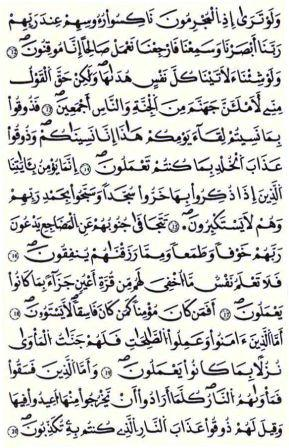 وَلَوْ تَرَىٰ إِذِ الْمُجْرِمُونَ نَاكِسُوا رُءُوسِهِمْ عِندَ رَبِّهِمْ
رَبَّنَا أَبْصَرْنَا وَسَمِعْنَا فَارْجِعْنَا نَعْمَلْ صَالِحًا إِنَّا مُوقِنُونَ ۝١٢
وَلَوْ شِئْنَا لَآتَيْنَا كُلَّ نَفْسٍ هُدَاهَا وَلَٰكِنْ حَقَّ الْقَوْلُ
مِنِّي لَأَمْلَأَنَّ جَهَنَّمَ مِنَ الْجِنَّةِ وَالنَّاسِ أَجْمَعِينَ ۝١٣ فَذُوقُوا
بِمَا نَسِيتُمْ لِقَاءَ يَوْمِكُمْ هَٰذَا إِنَّا نَسِينَاكُمْ وَذُوقُوا
عَذَابَ الْخُلْدِ بِمَا كُنتُمْ تَعْمَلُونَ ۝١٤ إِنَّمَا يُؤْمِنُ بِآيَاتِنَا
الَّذِينَ إِذَا ذُكِّرُوا بِهَا خَرُّوا سُجَّدًا وَسَبَّحُوا بِحَمْدِ رَبِّهِمْ
وَهُمْ لَا يَسْتَكْبِرُونَ ۝١٥ تَتَجَافَىٰ جُنُوبُهُمْ عَنِ الْمَضَاجِعِ يَدْعُونَ
رَبَّهُمْ خَوْفًا وَطَمَعًا وَمِمَّا رَزَقْنَاهُمْ يُنفِقُونَ ۝١٦
فَلَا تَعْلَمُ نَفْسٌ مَّا أُخْفِيَ لَهُم مِّن قُرَّةِ أَعْيُنٍ جَزَاءً بِمَا كَانُوا
يَعْمَلُونَ ۝١٧ أَفَمَن كَانَ مُؤْمِنًا كَمَن كَانَ فَاسِقًا لَّا يَسْتَوُونَ ۝١٨
أَمَّا الَّذِينَ آمَنُوا وَعَمِلُوا الصَّالِحَاتِ فَلَهُمْ جَنَّاتُ الْمَأْوَىٰ
نُزُلًا بِمَا كَانُوا يَعْمَلُونَ ۝١٩ وَأَمَّا الَّذِينَ فَسَقُوا
فَمَأْوَاهُمُ النَّارُ كُلَّمَا أَرَادُوا أَن يَخْرُجُوا مِنْهَا أُعِيدُوا فِيهَا
وَقِيلَ لَهُمْ ذُوقُوا عَذَابَ النَّارِ الَّذِي كُنتُم بِهِ تُكَذِّبُونَ ۝٢٠